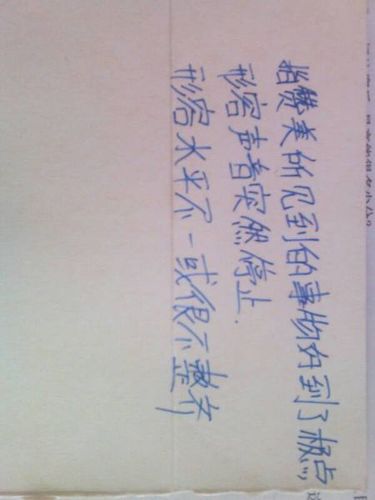 指赞美所见到的事物好到了极点,
形容声音突然停止.
形容水平不一或很不整齐